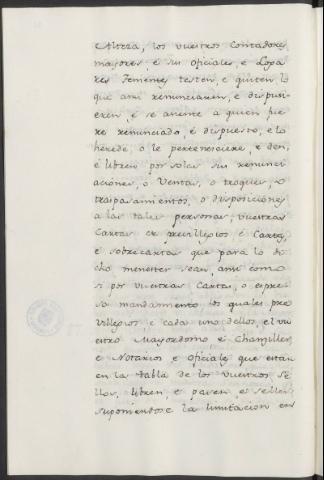 Alteza, los vuestros Contadores
mayores, é sus oficiales, é Loga
res Tenientes testen, e quiten lo
que ansi renunciaren, e dispusi-
eren, é se asiente a quien fue
re renunciado, é dispuesto, e lo
heredó, o le perteneciere, e den,
é libren por solas sus renunci
aciones, o Ventas, o troques, o
traspasamientos, o disposiciones
a las tales personas, vuestras
Cartas de previllexios é Cartas,
é sobrecartas que para lo di
cho menester sean, ansi como
si por vuestras Cartas, o expre
so mandamiento los quales pre
villexios, é cada uno dellos, el vu
estro Mayordomo, é Chanziller,
e Notarios, e Oficiales que estan
en la tabla de los vuestros Se
llos, libren, e pasen, e sellen
suponiendose la limitacion en